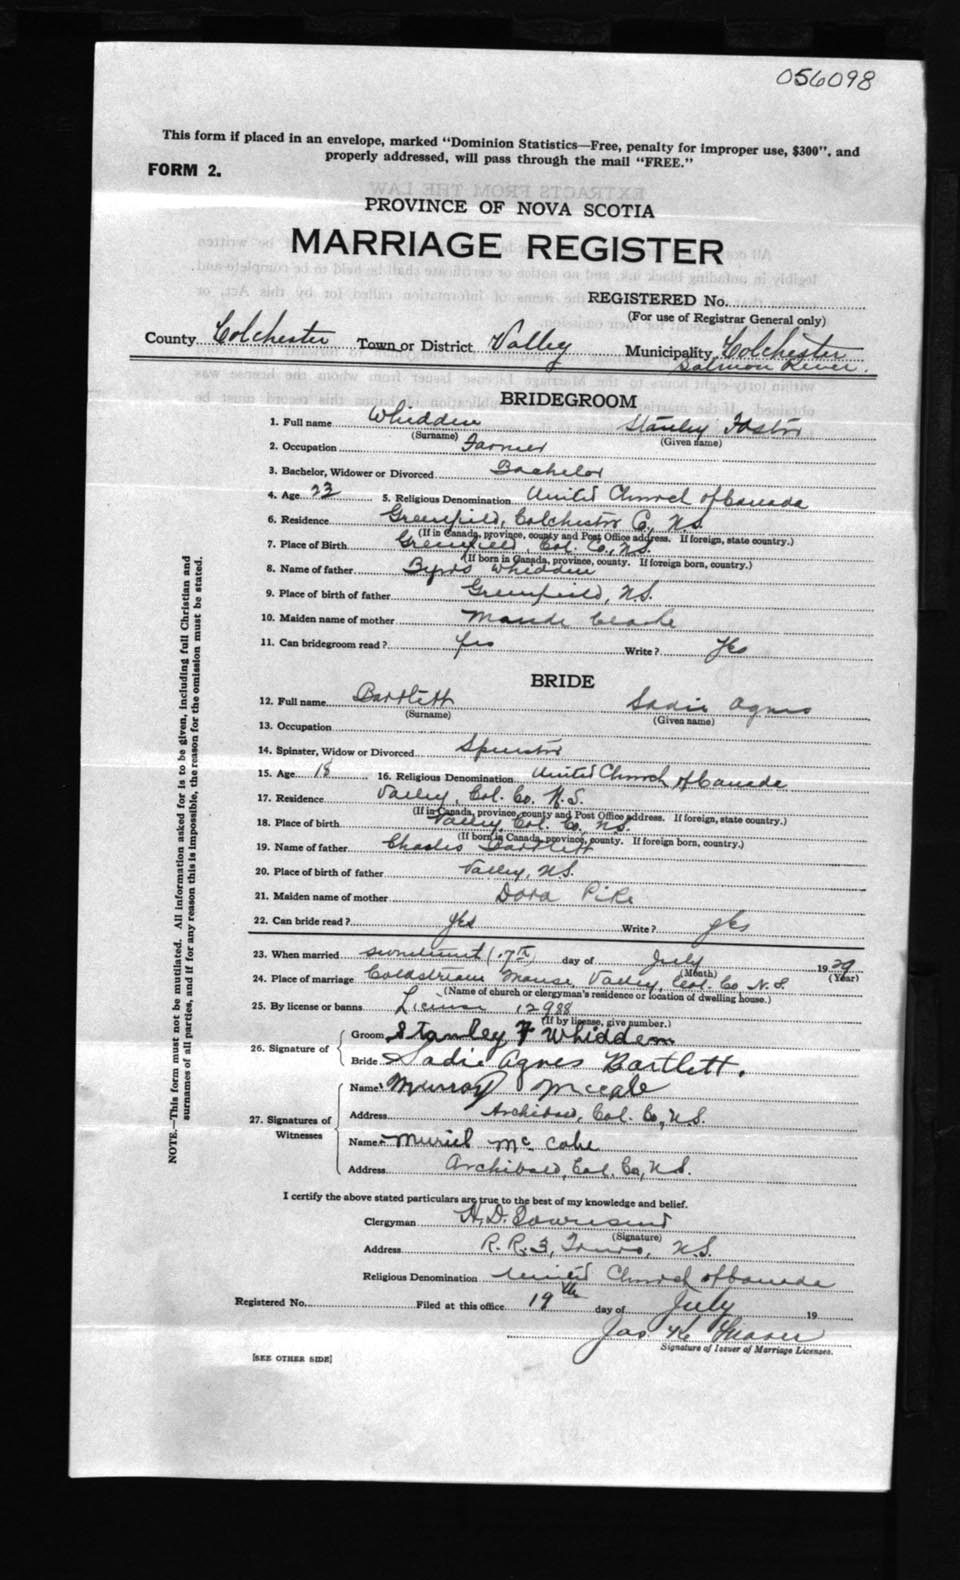 056098
This form if placed in an envelope, marked "Dominion Statistics—Free, penalty for improper use, $300", and
properly addressed, will pass through the mail "FREE."
FORM 2.
PROVINCE OF NOVA SCOTIA
MARRIAGE REGISTER
REGISTERED No.
(For use of Registrar General only)
County Colchester Town or District Valley Municipality Colchester
Salmon River.
BRIDEGROOM
1. Full name Whidden Stanley Foster
(Surname) (Given name)
2. Occupation Farmer
3. Bachelor, Widower or Divorced Bachelor
4. Age 23 5. Religious Denomination United Church of Canada
6. Residence Greenfield, Colchester Co., N.S.
(If in Canada, province, county and Post Office address. If foreign, state country.)
7. Place of Birth Greenfield, Col. Co., N.S.
(If born in Canada, province, county. If foreign born, country.)
8. Name of father Whidden
9. Place of birth of father Greenfield, N.S.
10. Maiden name of mother Maude
11. Can bridegroom read? Yes Write? Yes
BRIDE
12. Full name Bartlett Sadie Agnes
(Surname) (Given name)
13. Occupation
14. Spinster, Widow or Divorced Spinster
15. Age 18 16. Religious Denomination United Church of Canada
17. Residence Valley, Col. Co. N.S.
(If in Canada, province, county and Post Office address. If foreign, state country.)
18. Place of birth Valley, Col. Co., N.S.
(If born in Canada, province, county. If foreign born, country.)
19. Name of father Charles Bartlett
20. Place of birth of father Valley, N.S.
21. Maiden name of mother Dora Pike
22. Can bride read? Yes Write? Yes
23. When married seventeenth (17th) day of July 1929
(Month) (Year)
24. Place of marriage Coldstream Manse, Valley, Col. Co N.S.
(Name of church or clergyman's residence or location of dwelling house.)
25. By license or banns License 12988
(If by license, give number.)
26. Signature of Groom Stanley F Whidden
Bride Sadie Agnes Bartlett.
27. Signatures of Witnesses
Name Murray
Address Archibald, Col. Co., N.S.
Name Muriel Mc Cabe
Address Archibald, Col. Co., N.S.
I certify the above stated particulars are true to the best of my knowledge and belief.
Clergyman A. D. Townsend
(Signature)
Address R. R. 3, Truro, N.S.
Religious Denomination United Church of Canada
Registered No. Filed at this office 19th day of July 19
Jas
Signature of Issuer of Marriage Licenses.
[SEE OTHER SIDE]
NOTE.—This form must not be mutilated. All information asked for is to be given, including full Christian and
surnames of all parties, and if for any reason this is impossible, the reason for the omission must be stated.